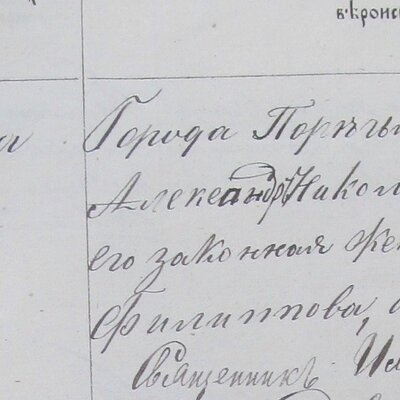 Города Порѣчь
Александръ Никол
его законная же
Филиппова,
Священникъ